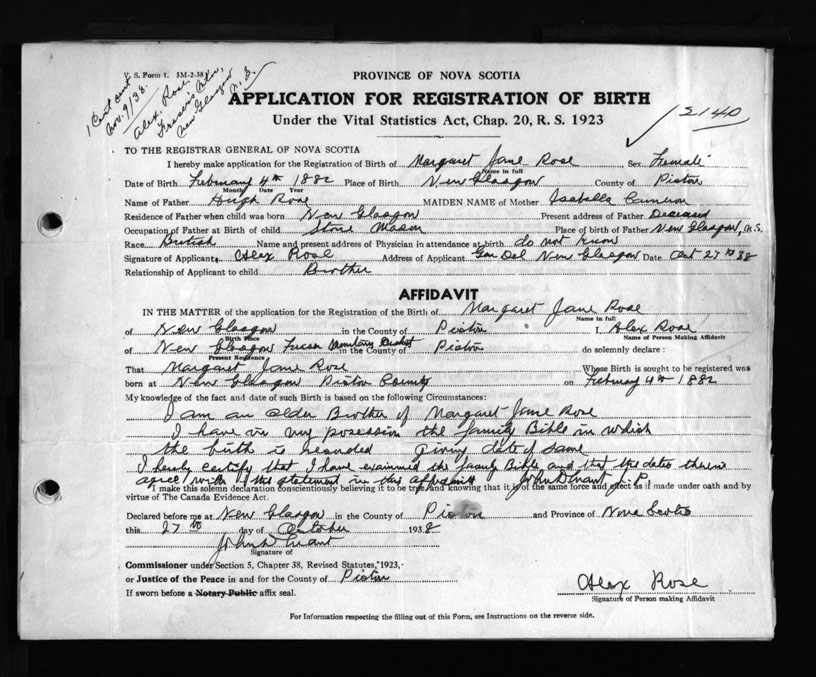 V. S. Form 1. 5M-2-38
1 Cert sent
Nov. 9/38.
Alex. Rose
New Glasgow
N. S.
PROVINCE OF NOVA SCOTIA
APPLICATION FOR REGISTRATION OF BIRTH
Under the Vital Statistics Act, Chap. 20, R. S. 1923
2140
TO THE REGISTRAR GENERAL OF NOVA SCOTIA
I hereby make application for the Registration of Birth of Margaret Jane Rose Sex Female
Name in full
Date of Birth February 4th 1882 Place of Birth New Glasgow County of Pictou
Month Date Year
Name of Father Hugh Rose MAIDEN NAME of Mother Isabella Cameron
Residence of Father when child was born New Glasgow Present address of Father Deceased
Occupation of Father at Birth of child Stone Mason Place of birth of Father New Glasgow, N. S.
Race British Name and present address of Physician in attendance at birth do not know
Signature of Applicant Alex Rose Address of Applicant Gen Del New Glasgow Date Oct 27th 38
Relationship of Applicant to child Brother
AFFIDAVIT
IN THE MATTER of the application for the Registration of the Birth of Margaret Jane Rose
Name in full
of New Glasgow in the County of Pictou I, Alex Rose
Birth Place Name of Person Making Affidavit
of New Glasgow in the County of Pictou do solemnly declare:
Present Residence
That Margaret Jane Rose Whose Birth is sought to be registered was
born at New Glasgow Pictou County on February 4th 1882
My knowledge of the fact and date of such Birth is based on the following Circumstances:
I am an older Brother of Margaret Jane Rose
I have in my posession the family Bible in which
the birth is recorded giving date of same
I hereby certify that I have examined the family Bible and that the dates therein
agree with the statement in this affidavit John D Grant J. P.
I make this solemn declaration conscientiously believing it to be true and knowing that it is of the same force and effect as if made under oath and by
virtue of The Canada Evidence Act.
Declared before me at New Glasgow in the County of Pictou and Province of Nova Scotia
this 27th day of October 1938
John D Grant
Signature of
Commissioner under Section 5, Chapter 38, Revised Statutes, 1923,
or Justice of the Peace in and for the County of Pictou
If sworn before a Notary Public affix seal.
Alex Rose
Signature of Person making Affidavit
For Information respecting the filling out of this Form, see Instructions on the reverse side.